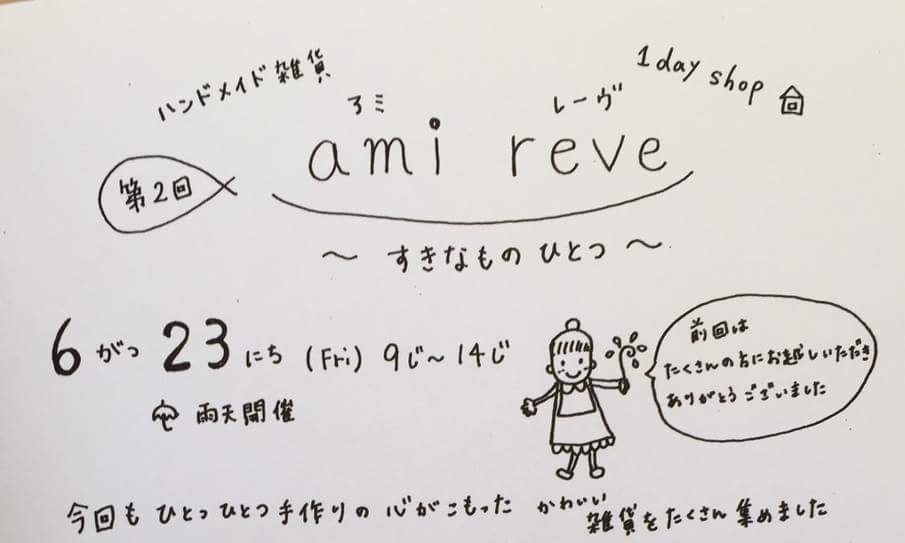 ハンドメイド雑貨
1day shop
アミ レーヴ
ami reve
第2回
～ すきなもの ひとつ ～
6がつ 23にち (Fri) 9じ～14じ
雨天開催
前回は
たくさんの方にお越しいただき
ありがとうございました
今回も ひとつひとつ手作りの 心がこもった かわいい
雑貨をたくさん集めました